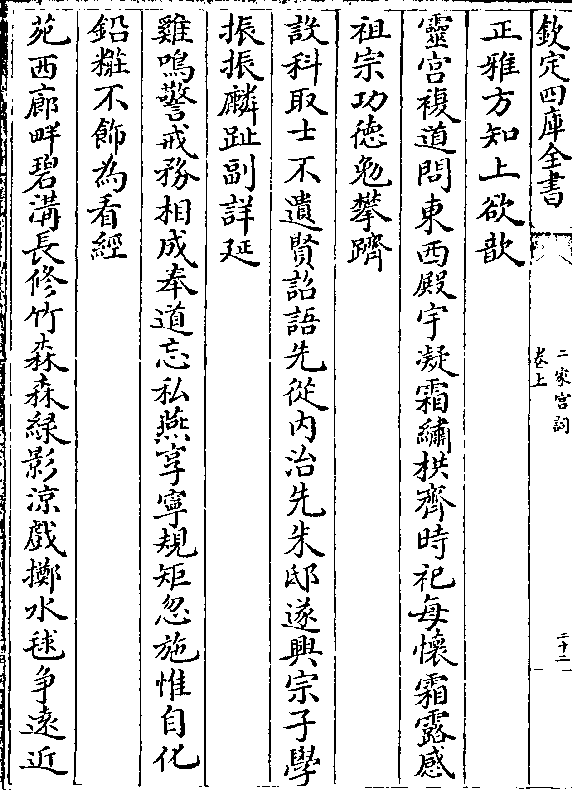 欽定四庫全書
二家宫詞
卷上
二十二
正雅方知上欲歆
靈宫複道問東西殿宇凝霜繡栱齊時祀每懷霜露感
祖宗功徳勉攀躋
設科取士不遺賢詔語先從内治先朱邸遂興宗子學
振振麟趾副詳延
雞鳴警戒務相成奉道忘私燕享寧規矩忽施惟自化
鉛粧不飾為看經
苑西廊畔碧溝長修竹森森緑影涼戲擲水毬争逺近